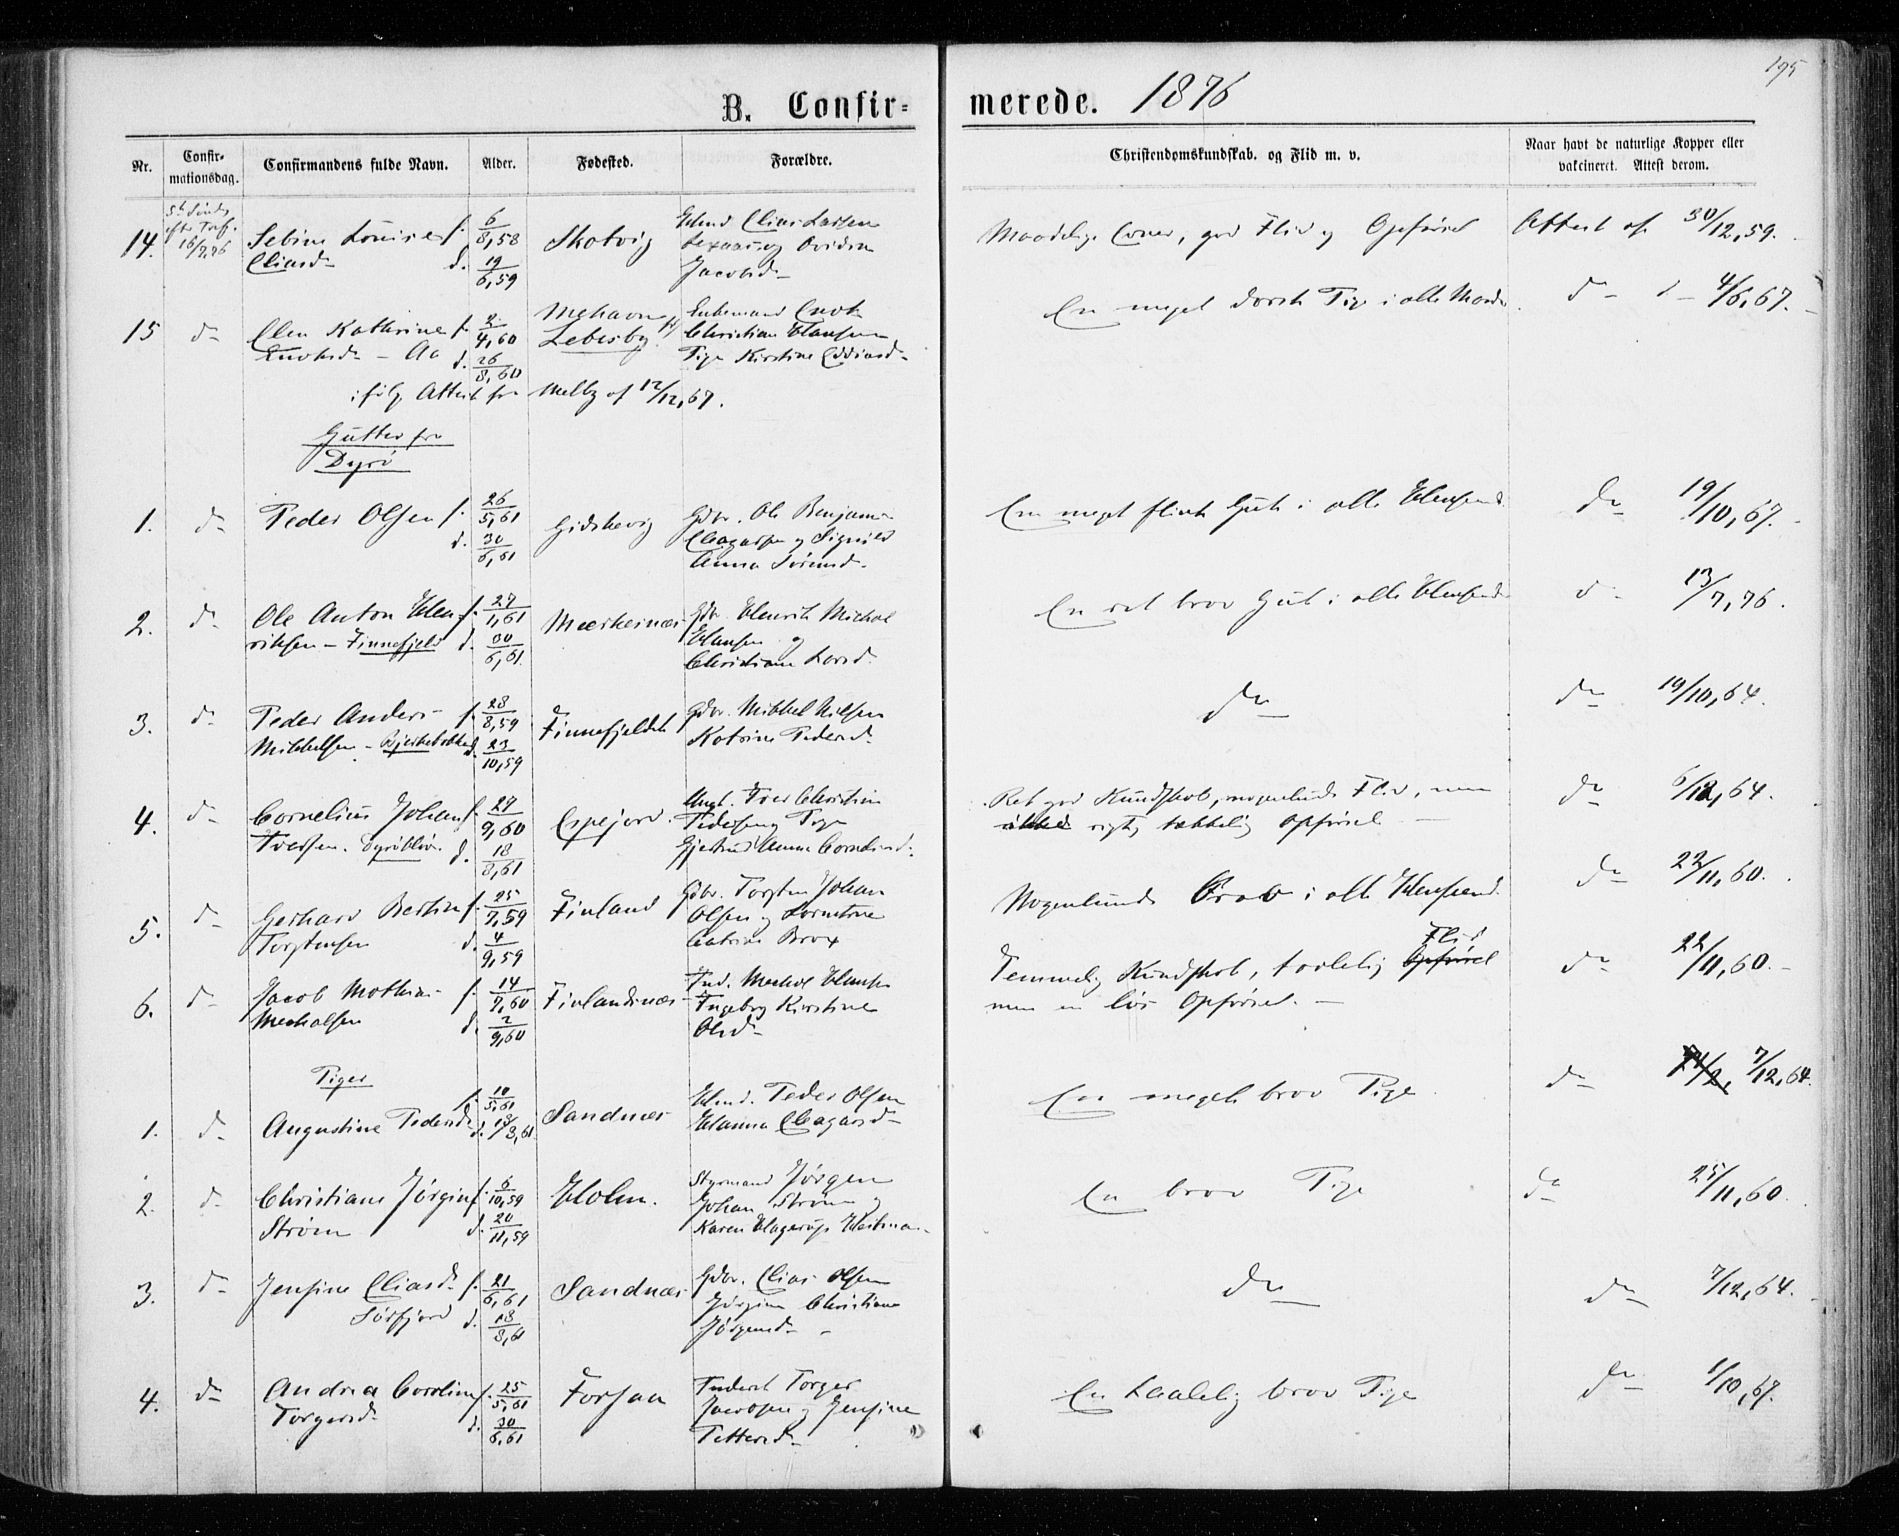 195
B. Confir- merede. 1876
Nr.
Confir-
mationsdag.
Confirmandens fulde Navn.
Alder.
Fødested.
Forældre.
Christendomskundskab. og Flid m. v.
Naar havt de naturlige Kopper eller
vakcineret. Attest derom.
14.
16/7,76
Sebine Louise
Eliasd.
f. 6/8,58
d. 19/6,59
Skotvig
Elias Larsen
og
Jacobsd.
Maadelige Evner, god Flid og Opførsel
Attest af 30/12,59.
15
do
Elen Kathrine
Enoksd. - Aa
f. 2/4,60
d. 26/8,60
Mehavn
Lebesby
Enkemand Enok
Christian Hansen
Pige Kirstine
En meget dorsk Pige i alle Maader
do d - 4/6,67.
ifølge Attest fra Melby af 12/12,67.
Gutter fra
Dyrø
1.
do
Peder Olsen
f. 26/5,61
d. 30/6,61
Gidskevig
Gdbr. Ole Benjamin
og Signild
Anna Sørensd.
En meget flink Gut i alle Henseender
do 19/10,67.
2.
do
Ole Anton Hen-
riksen - Finnefjeld
f. 27/1,61
d. 30/6,61
Mærkesnæs
Gdbr. Henrik Michal
Hansen og
Christiane Larsd.
En ret brav Gut i alle Henseender
d 13/7,76.
3.
do
Peder Anders
Mikkelsen - Bjerkebakke
f. 28/8,59
d. 23/10,59
Finnefjeldet
Gdbr. Mikkel Nilsen
Katrine Pedersd.
do
do 19/10,64.
4.
do
Cornelius Johan
Iversen. Dyrøkløv.
f. 27/9,60
d. 18/8,61
Espejord
Ungk. Iver Christian
Pedersen og Pige
Gjertrud Anna Corneliusd.
Ret god Kundskab, nogenlunde Flid, men
ikke rigtig tækkelig Opførsel
do 6/12,64.
5.
do
Gerhard Bertin
Torstensen
f. 25/7,59
d. 4/9,59
Finland
Gdbr. Torsten Johan
Olsen og
Catrine Brox
Nogenlunde Brav i alle Henseend.
do 22/11,60.
6.
do
Jacob Mathias
Meckalsen
f. 14/7,60
d. 2/9,60
Finlandsnæs
Ind. Meckal Hansen
Ingeborg Kirstine
Olsd.
Temmelig Kundskab, taalelig Opførsel Flid
men en løs Opførsel.
do 22/11,60.
Piger
1.
do
Augustine Pedersd.
f. 10/5,61
d. 18/8,61
Sandnæs
Hmd. Peder Olsen
Hanna
En meget brav Pige
do 7/12,64.
2.
do
Christiane Jørgine
Strøm
f. 6/10,59
d. 20/11,59
Holm.
Styrmand Jørgen
Johan Strøm og
Karen Hagerup
En brav Pige
do 25/11,60.
3.
do
Jensine Eliasd.
Sørfjord
f. 21/6,61
d. 18/8,61
Sandnæs
Gdbr. Elias Olsen
Jørgine Christiane
Jørgensd.
do
do 7/12,64.
4.
do
Andrea Caroline
Torgersd.
f. 25/5,61
d. 30/6,61
Forsaa
Inderst Torger
Jacobsen og Jensine
Pettersd.
En taalelig brav Pige
do 1/10,67.